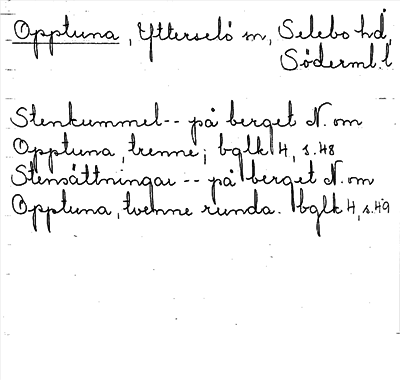 Opptuna, Ytterselö sn, Selebo hd,
Söderml. l
Stenkummel -- på berget N. om
Opptuna, trenne; bglk 4, s. 48
Stensättningar -- på berget N. om
Opptuna, tvenne runda. bglk 4, s. 49